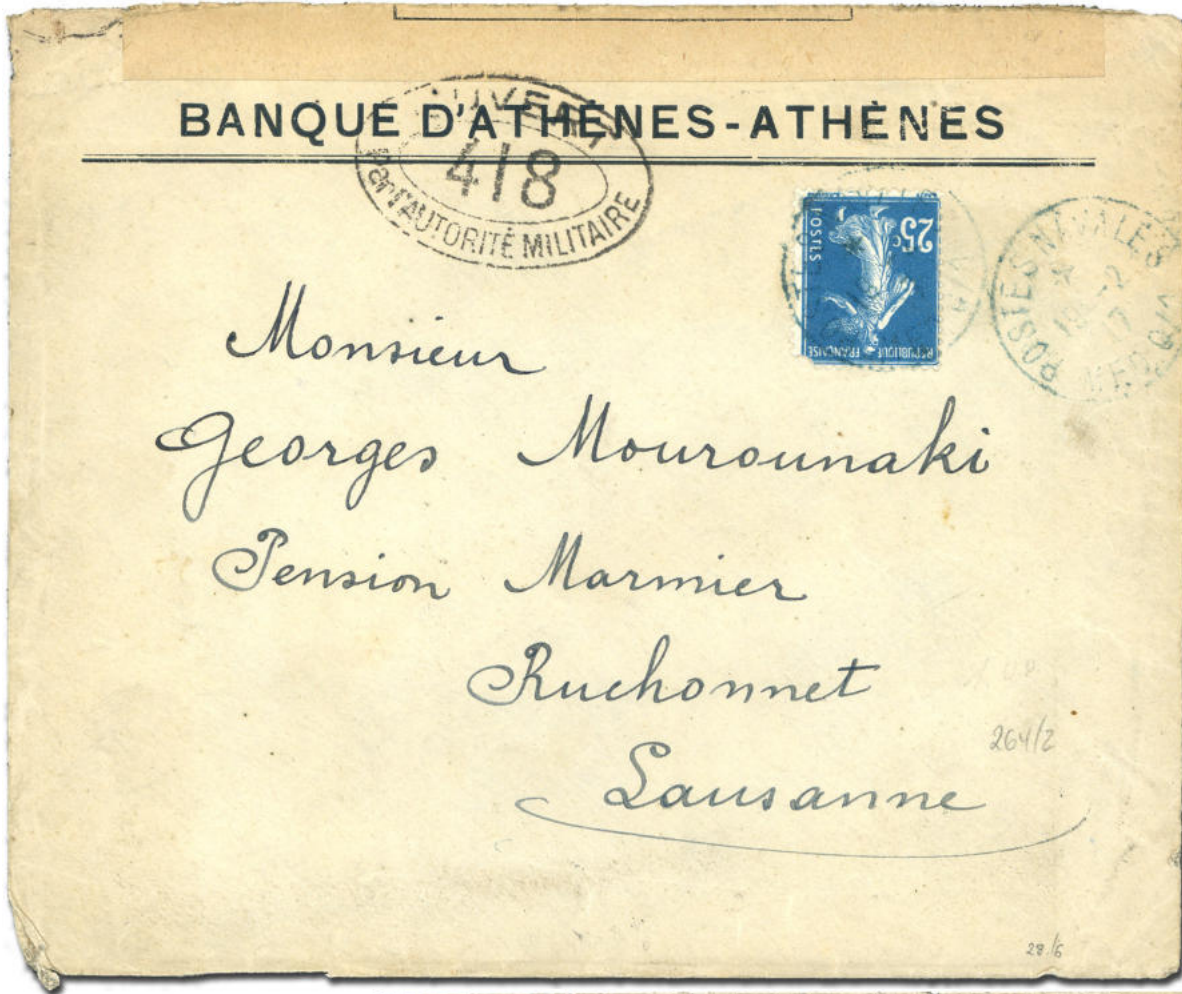 BANQUE D'ATHÈNES-ATHÈNES
OUVERT
418
par l'AUTORITÉ MILITAIRE
25c
POSTES
REPUBLIQUE FRANÇAISE
POSTES NAVALES
Monsieur
Georges Mourounaki
Pension Marmier
Ruchonnet
Lausanne
264/2
28/6